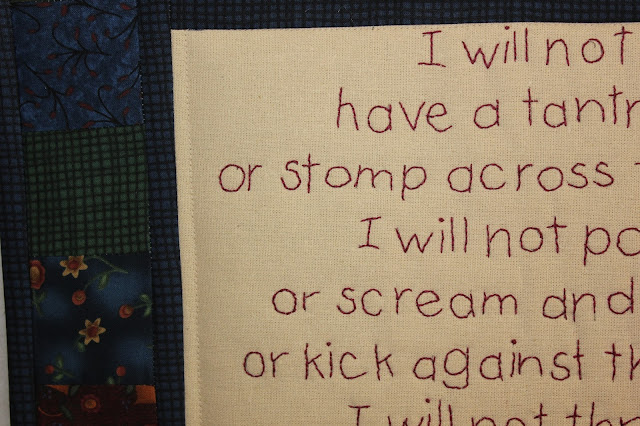 I will not
have a tantr
or stomp across
I will not po
or scream and
or kick against th
I will not thr